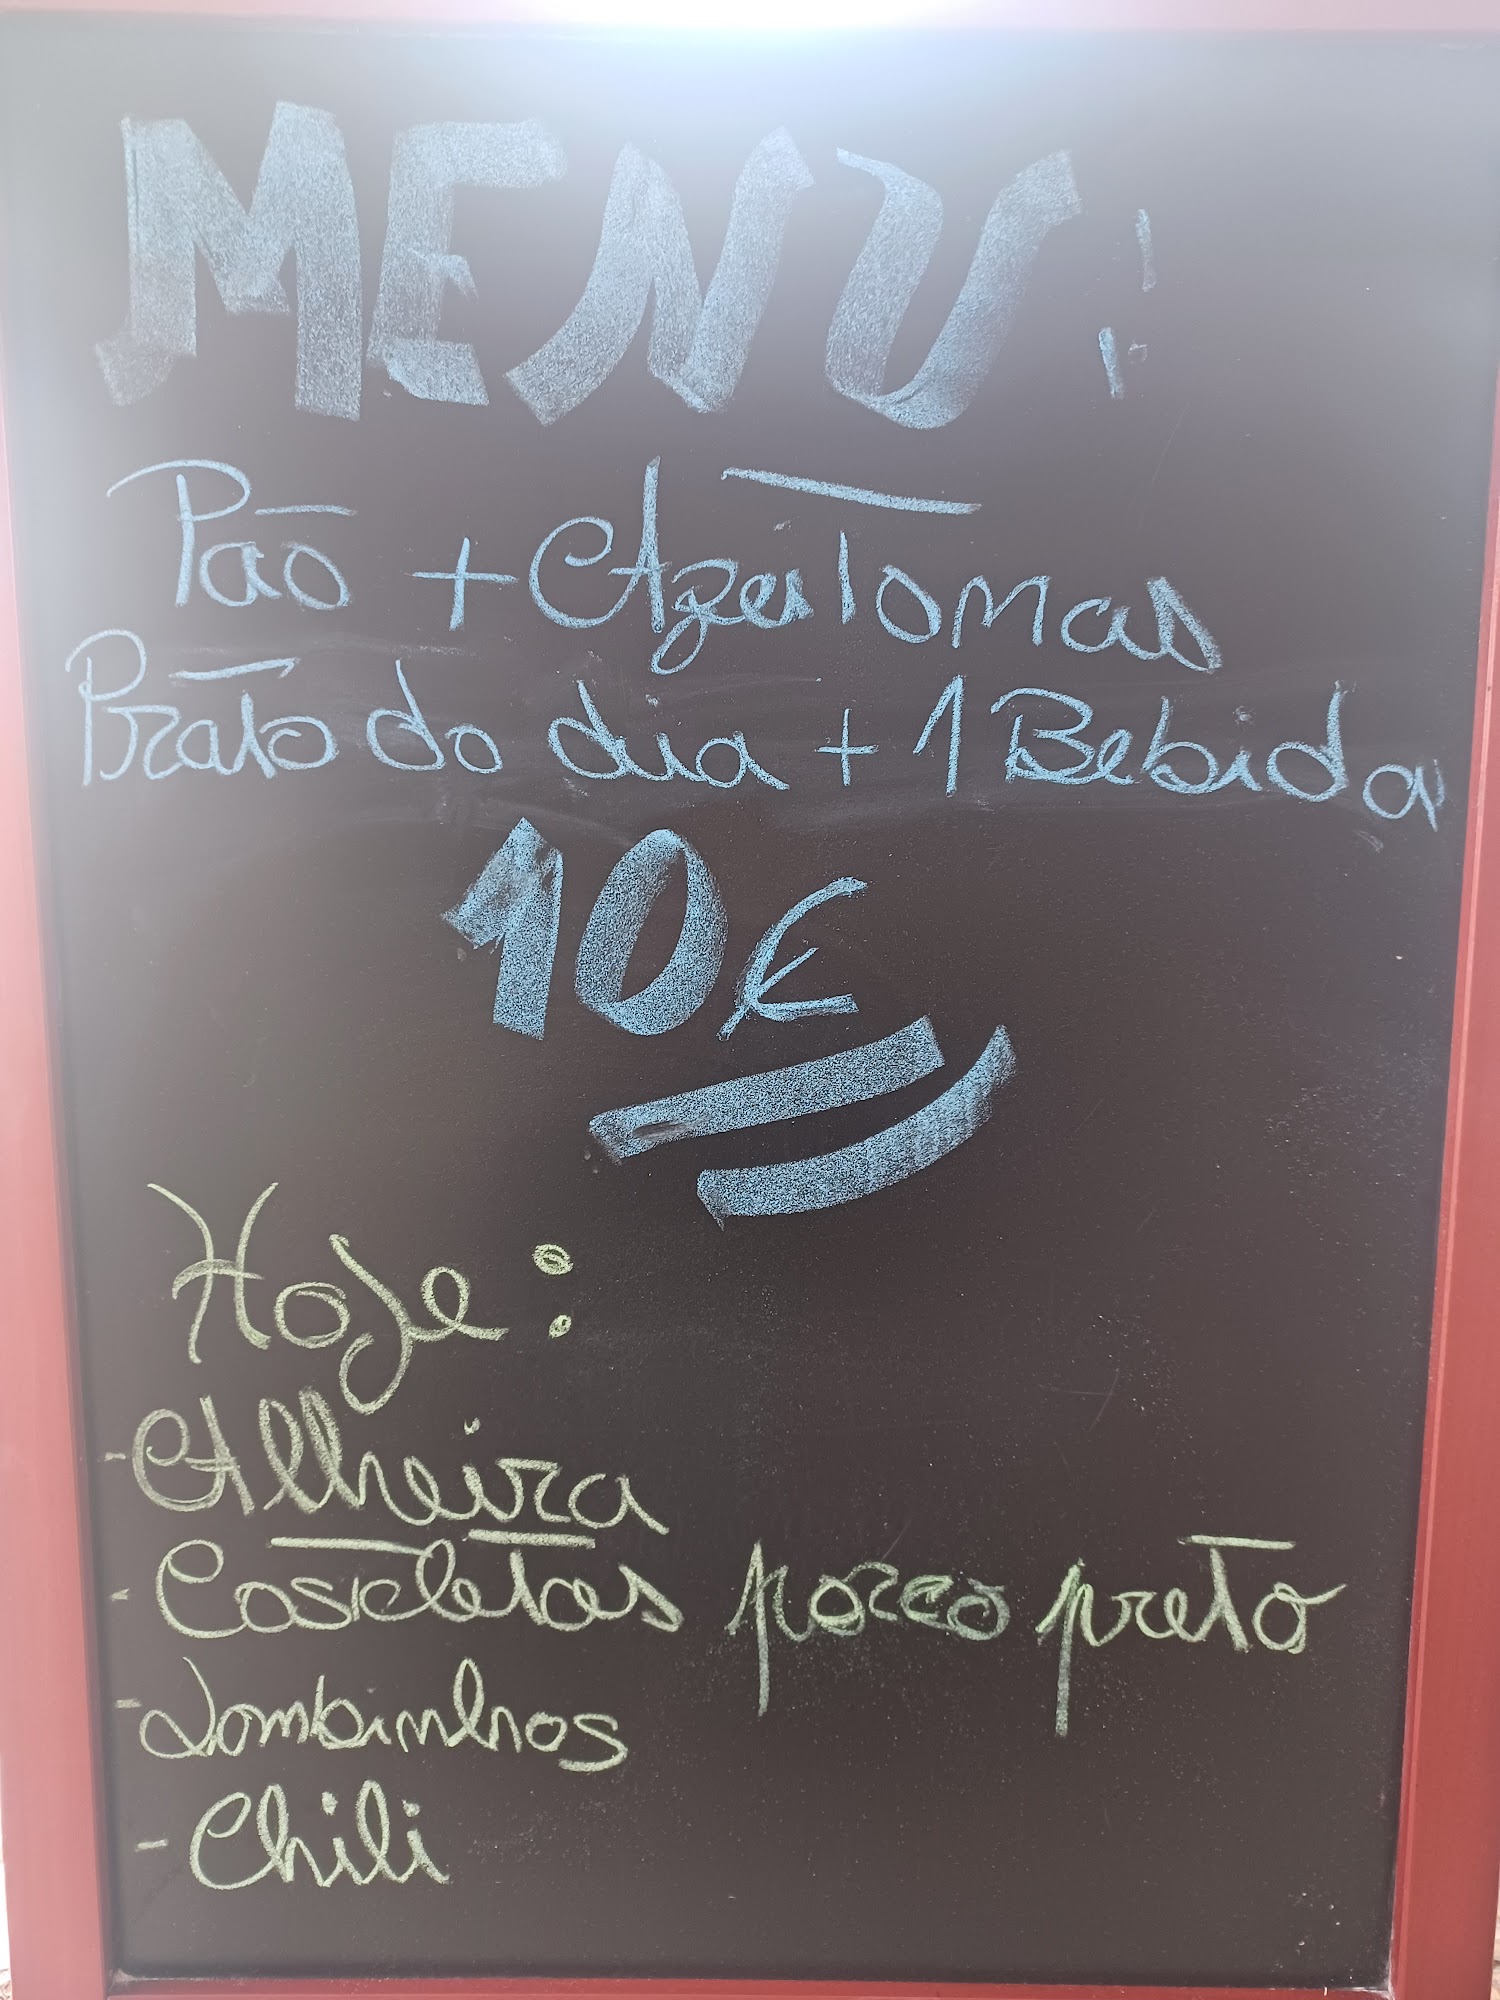 MENU:
Pão + Azeitonas
Prato do dia + 1 Bebida
10€
Hoje:
- Alheira
- Costeletas porco preto
- Lombinhos
- Chili